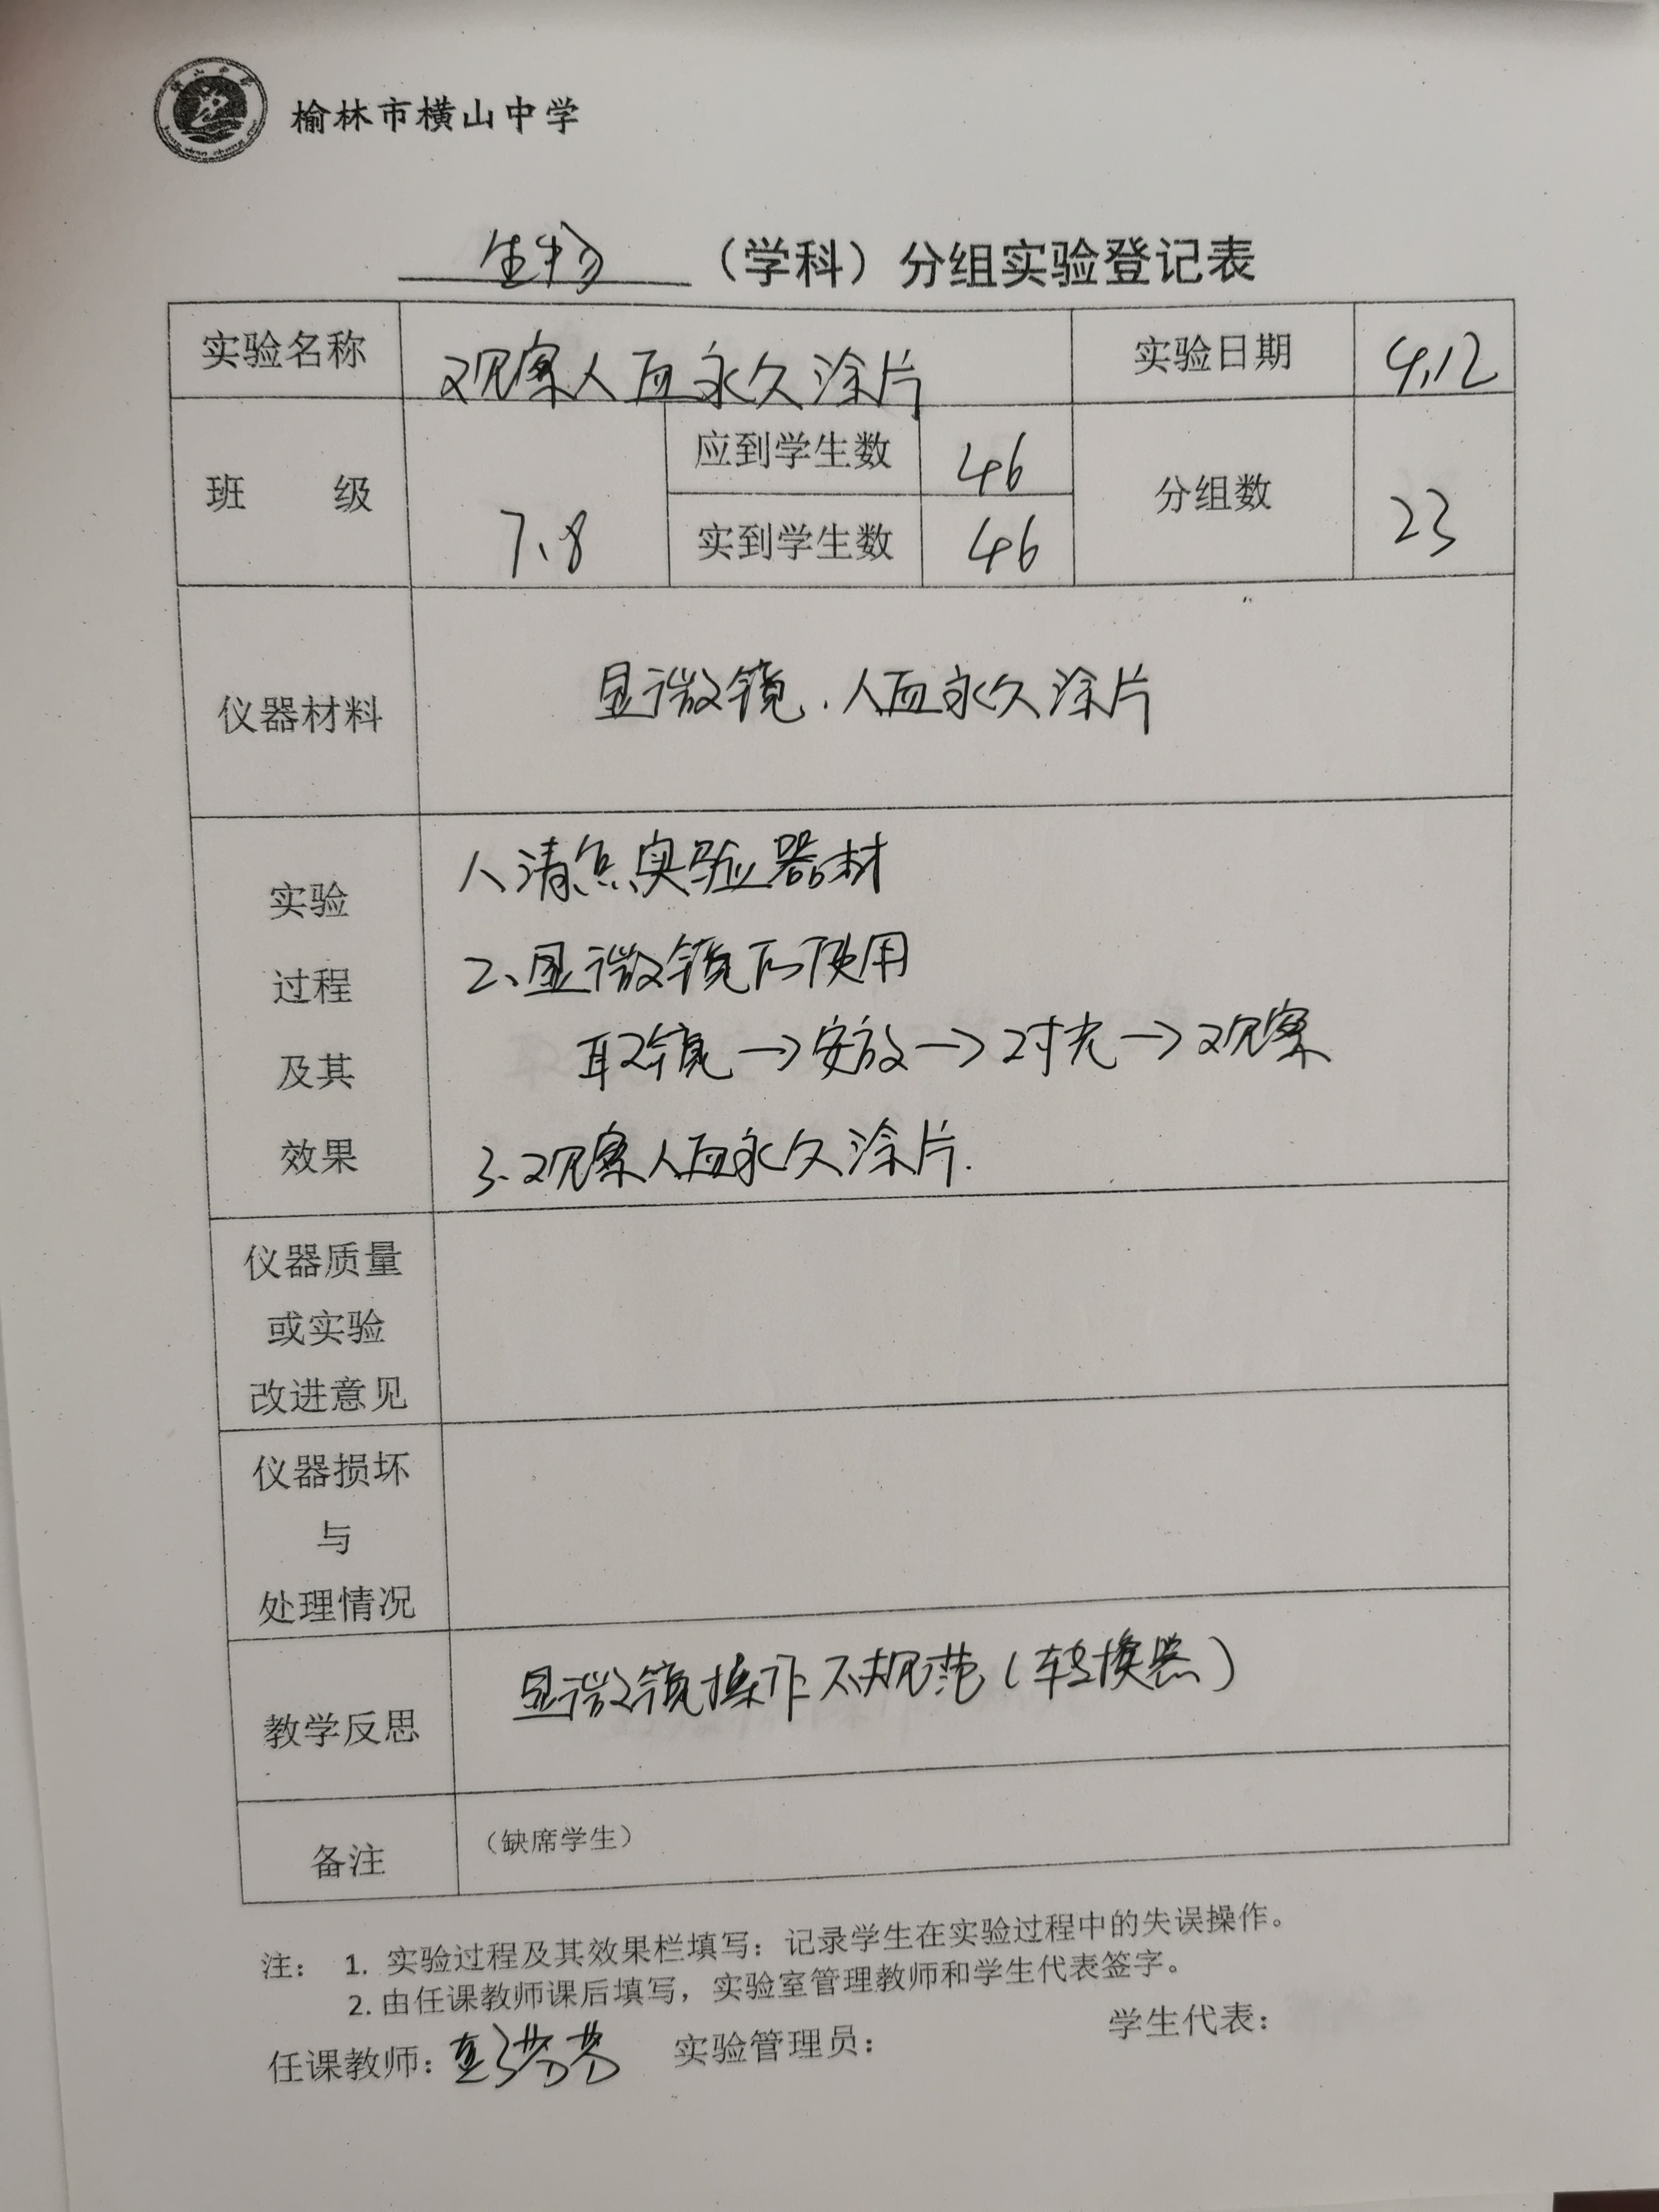 榆林市横山中学
生物（学科）分组实验登记表
实验名称 观察人血永久涂片 实验日期 4.12
班 级 7.8 应到学生数 46 分组数 23
实到学生数 46
仪器材料 显微镜、人血永久涂片
实验
过程
及其
效果
1、清点实验器材
2、显微镜的使用
取镜→安放→对光→观察
3.观察人血永久涂片.
仪器质量
或实验
改进意见
仪器损坏
与
处理情况
教学反思 显微镜操作不规范（转换器）
备注 （缺席学生）
注： 1. 实验过程及其效果栏填写：记录学生在实验过程中的失误操作。
2. 由任课教师课后填写，实验室管理教师和学生代表签字。
任课教师： 实验管理员： 学生代表：